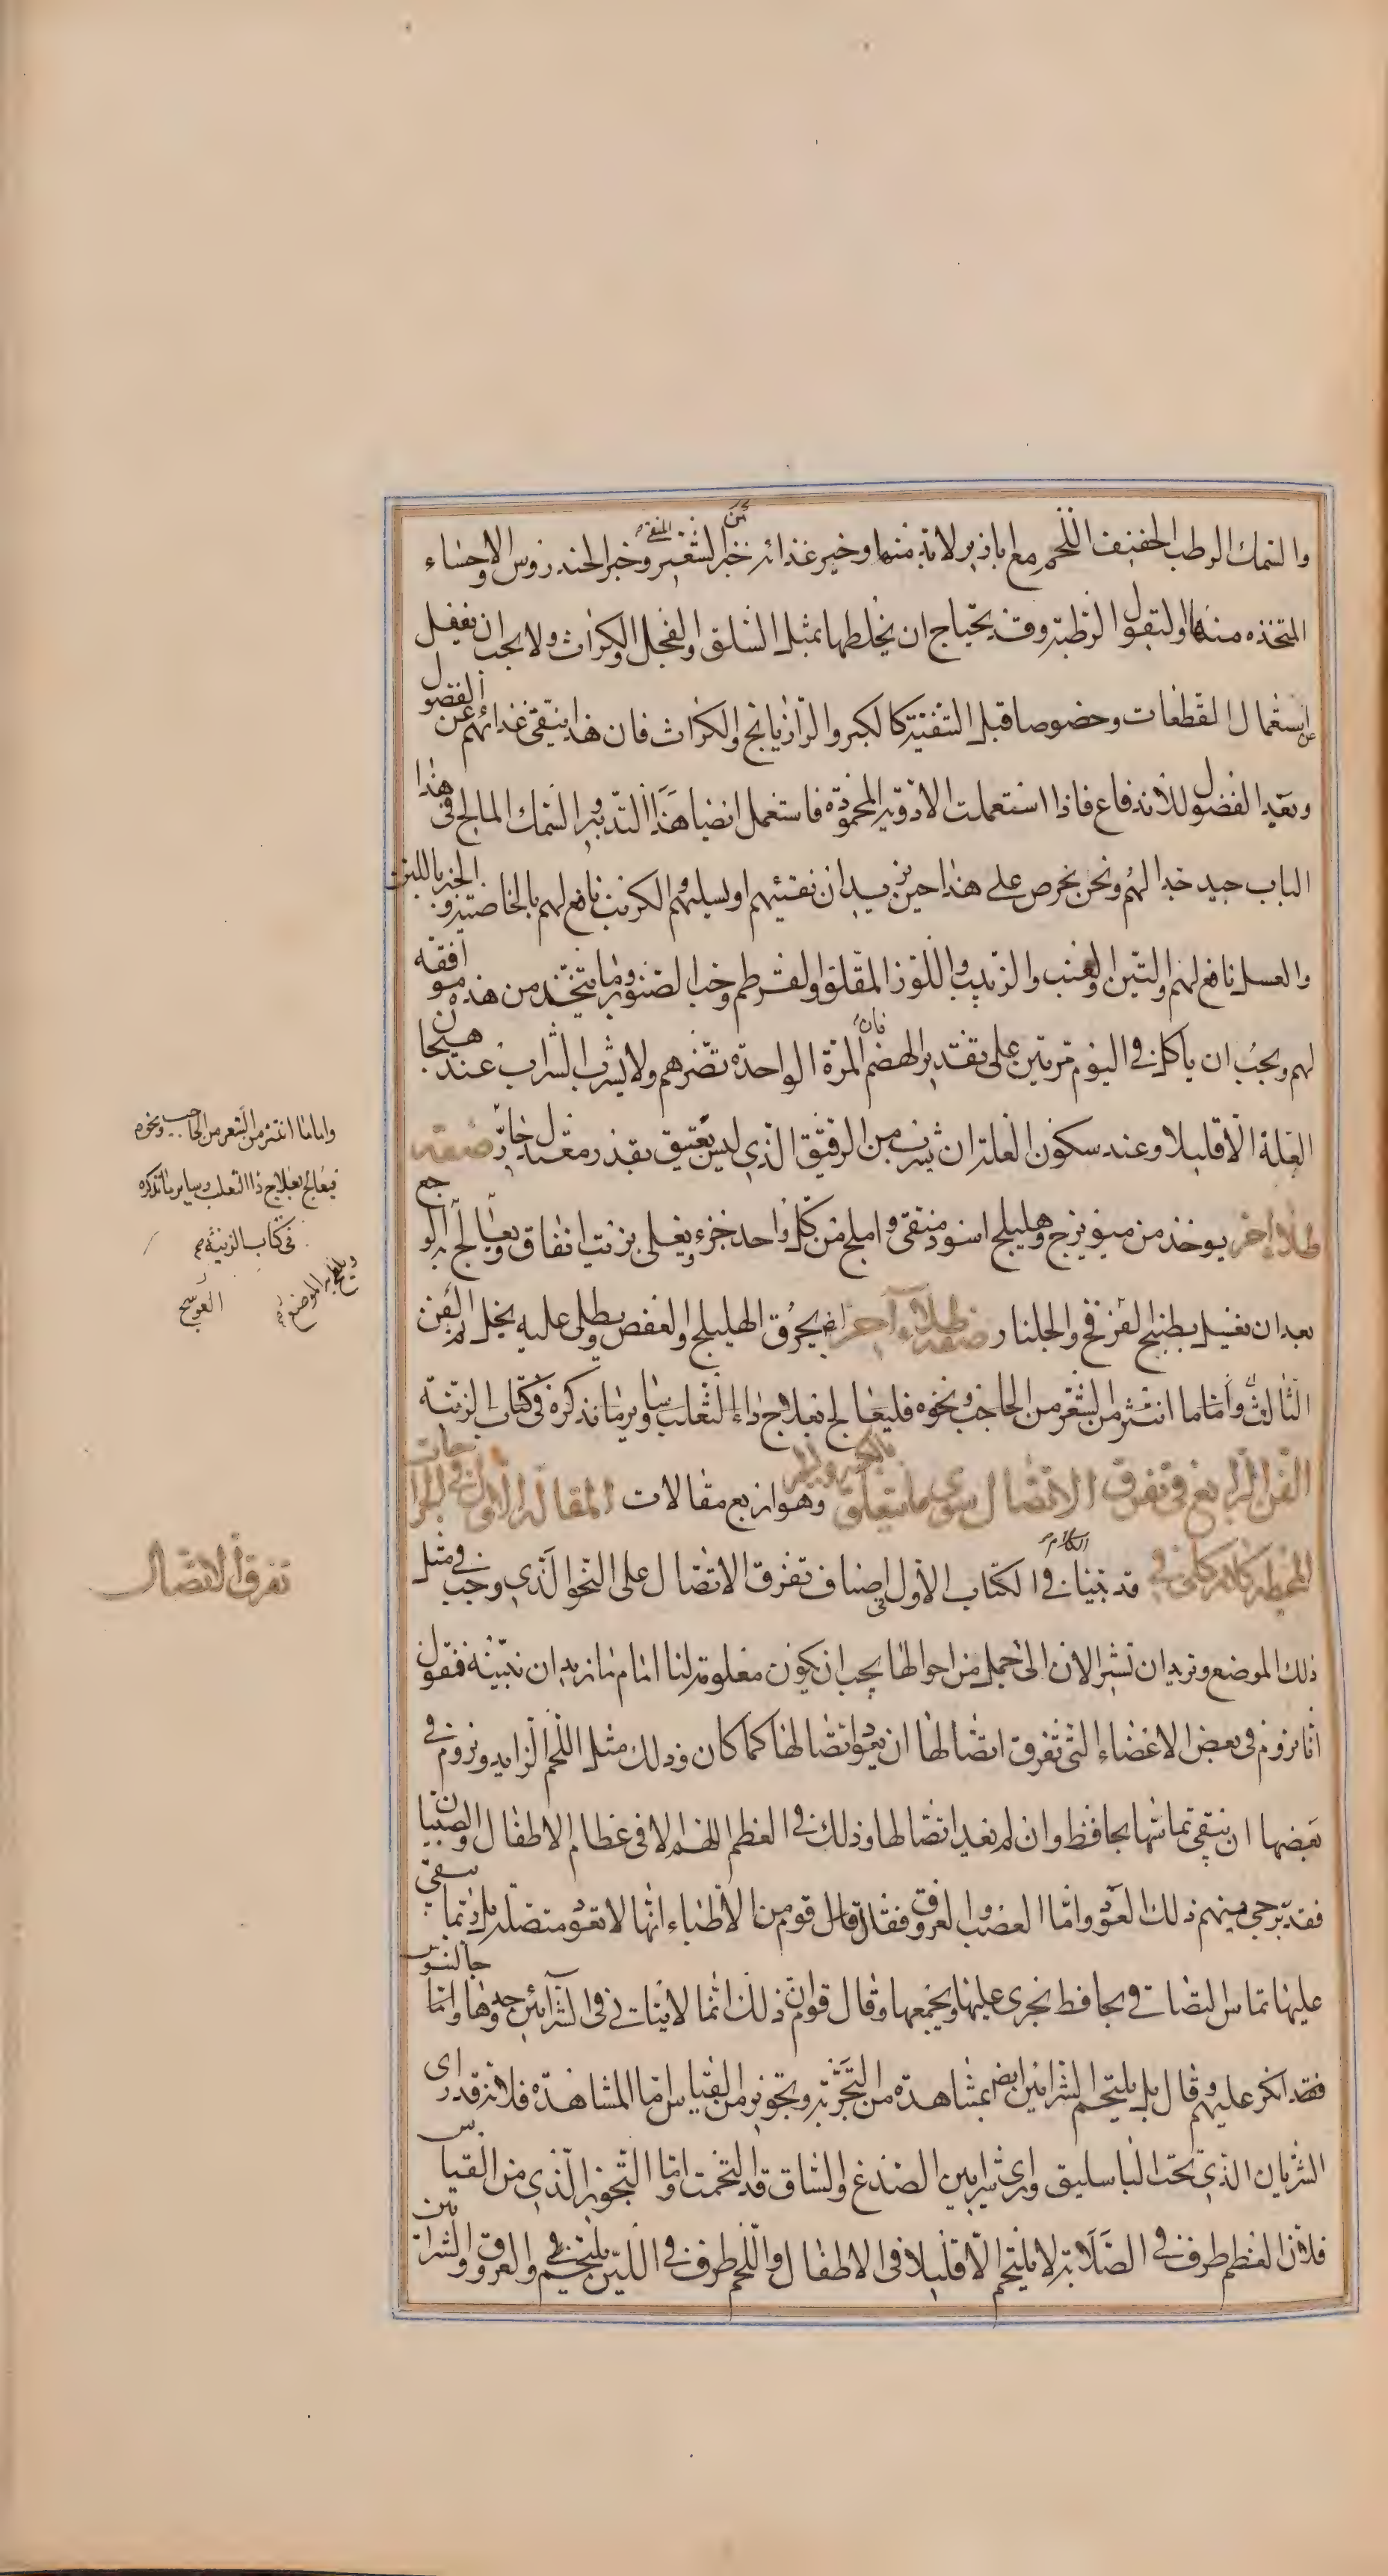 والسمك الرطب الخفيف اللحم مع اباذير لابد منها وخير غذائه خبز الشعير المنقى وخبز الخندروس والاحساء
المتخذه منهما والبقول الرطبة وقد يحتاج ان يخلطها بمثل السلق والفجل والكراث ولا يجب ان يغفل
عن استعمال القطعات وخصوصا قبل التنقية كالكبر والرازيانج والكراث فان هذا ينقي غذائهم عن الفضول
وبعيد الفضول للاندفاع فاذا استعملت الادوية المحمودة فاستعمل ايضا هذا التدبير والسمك المالح في هذا
الباب جيد جدا لهم ونحن نحرص على هذا حين نريد ان نقيئهم او نسلهم والكرنب نافع لهم بالخاصية والخبز باللبن
والعسل نافع لهم والتين والعنب والزبيب واللوز المقلو والقرطم وحب الصنوبر وما يتخذ من هذه موافقه
لهم ويجب ان ياكلن في اليوم مرتين على تقدير الهضم فان المرة الواحدة تضرهم ولا يشرب الشراب عند هيجان
العلة الا قليلا وعند سكون العلة ان يشرب من الرقيق الذي ليس بعتيق بقدر معتدل جاز صفة
طلاء اخر يوخذ من ميويزج وهليلج اسود منقى واملج من كل واحد جزء ويغلى بزيت انفاق ويعالج به الوجع
بعد ان يغسل بطبيخ القرفح والجلنار صفة طلاء آخر ايض يحرق الهليلج والعفص ويطلى عليه بخل تم الفن
الثالث واما ما انتثر من الشعر من الحاجب ونحوه فليعالج بعلاج داء الثعلب وساير ما نذكره في كتاب الزينة
الفن الرابع في تفرق الاتصال سوى ما يتعلق بالكسر والجبر وهو اربع مقالات المقالة الاولى في الجراحات
كلام كلي في قد بينا في الكتاب الاول الكلام في اصناف تفرق الاتصال على النحو الذي وجب في مثل
ذلك الموضع ونريد ان نشير الان الى جمل من احوالها يجب ان يكون معلومة لنا امام ما نريد ان نبينه فنقول
انا نروم في بعض الاعضاء التي تفرق اتصالها ان يعود اتصالها كما كان وذلك مثل اللحم الزايد ونروم في
بعضها ان يبقى تماسها بحافظ وان لم يعد اتصالها وذلك في العظم اللهم الا في عظام الاطفال والصبيان
فقد يرجى منهم ذلك العود واما العصب والعروق فقال قال قوم من الاطباء انها لا تعود متصلة بل ربما بقي
عليها تماس التصاق بحافظ يجرى عليها ويجمعها وقال قوم ان ذلك انما لا يتاتى في الشرائين وحدها واما جالينوس
فقد انكر عليهم وقال بل يلتحم الشرائين ايض بمشاهدة من التجربة وتجويز من القياس اما المشاهدة فلانه قد راى
الشريان الذي تحت الباسليق وراى شرايين الصدغ والساق قد التحمت واما التجويز الذي من القياس
فلان العظم طرف في الصلابة لا يلتحم الا قليلا في الاطفال واللحم طرف في اللين يلتحم والعروق والشرايين
واما ما انتثر من الشعر من الحاجب ونحوه
فيعالج بعلاج داء الثعلب وساير ما نذكره
في كتاب الزينة
ويلطخ به الموضع
العوسج
تفرق الاتصال